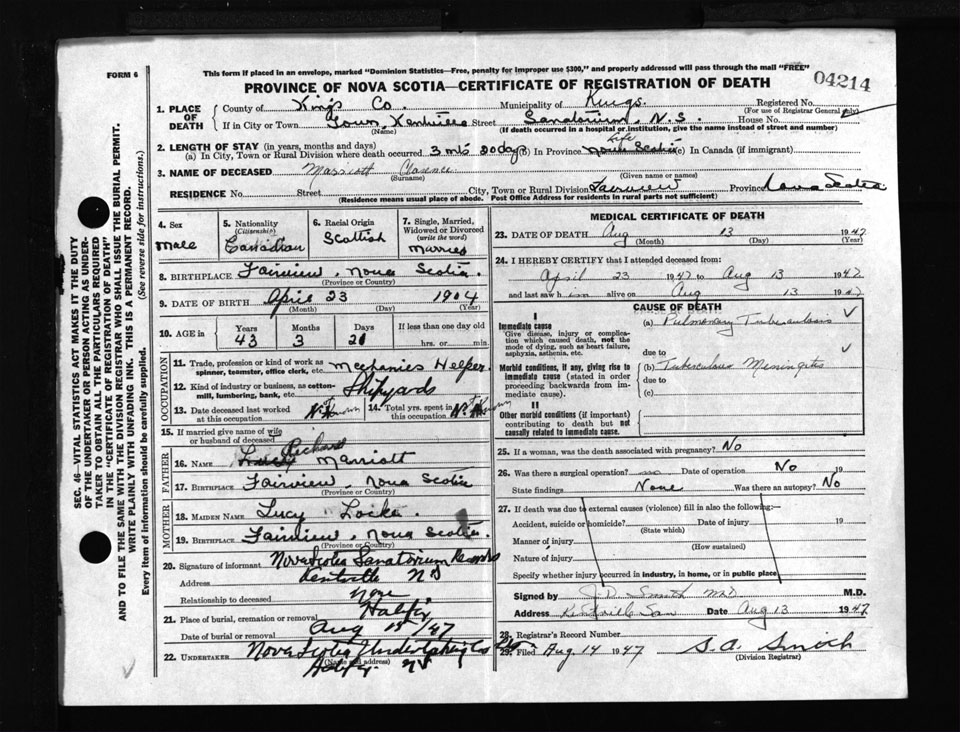 FORM 6
This form if placed in an envelope, marked "Dominion Statistics—Free, penalty for improper use $300," and properly addressed will pass through the mail "FREE"
04214
PROVINCE OF NOVA SCOTIA—CERTIFICATE OF REGISTRATION OF DEATH
1. PLACE OF DEATH
County of Kings Co. Municipality of Kings. Registered No.
(For use of Registrar General only)
If in City or Town Town, Kentville Street Sanatorium, N.S. House No.
(Name) (If death occurred in a hospital or institution, give the name instead of street and number)
2. LENGTH OF STAY (in years, months and days) Life
(a) In City, Town or Rural Division where death occurred 3 mts 20 days (b) In Province Nova Scotia (c) In Canada (if immigrant)
3. NAME OF DECEASED Marriott Clarence
(Surname) (Given name or names)
RESIDENCE No. Street City, Town or Rural Division Fairview Province Nova Scotia
(Residence means usual place of abode. Post Office Address for residents in rural parts not sufficient)
SEC. 46—VITAL STATISTICS ACT MAKES IT THE DUTY
OF THE UNDERTAKER OR PERSON ACTING AS UNDER-
TAKER TO OBTAIN ALL THE PARTICULARS REQUIRED
IN THE "CERTIFICATE OF REGISTRATION OF DEATH"
AND TO FILE THE SAME WITH THE DIVISION REGISTRAR WHO SHALL ISSUE THE BURIAL PERMIT.
WRITE PLAINLY WITH UNFADING INK. THIS IS A PERMANENT RECORD.
Every item of information should be carefully supplied. (See reverse side for instructions.)
4. Sex
Male
5. Nationality
(Citizenship)
Canadian
6. Racial Origin
Scottish
7. Single, Married, Widowed or Divorced
(write the word)
Married
8. BIRTHPLACE Fairview, Nova Scotia
(Province or Country)
9. DATE OF BIRTH April 23 1904
(Month) (Day) (Year)
10. AGE in Years Months Days If less than one day old
43 3 21 hrs. or min.
OCCUPATION
11. Trade, profession or kind of work as spinner, teamster, office clerk, etc. Mechanics Helper
12. Kind of industry or business, as cotton-mill, lumbering, bank, etc. Shipyards
13. Date deceased last worked at this occupation Not Known
14. Total yrs. spent in this occupation Not Known
15. If married give name of wife or husband of deceased
FATHER
16. NAME Richard Marriott
17. BIRTHPLACE Fairview, Nova Scotia
(Province or Country)
MOTHER
18. MAIDEN NAME Lucy Locke.
19. BIRTHPLACE Fairview, Nova Scotia.
(Province or Country)
20. Signature of informant Nova Scotia Sanatorium Records
Address Kentville NS
Relationship to deceased None
21. Place of burial, cremation or removal Halifx
Date of burial or removal Aug 15/47
22. UNDERTAKER Nova Scotia Undertaking Co
(Name and address)
Halifx NS
MEDICAL CERTIFICATE OF DEATH
23. DATE OF DEATH Aug 13 1947
(Month) (Day) (Year)
24. I HEREBY CERTIFY that I attended deceased from:
April 23 1947 to Aug 13 1947
and last saw him alive on Aug 13 1947
CAUSE OF DEATH
I
Immediate cause
Give disease, injury or complication which caused death, not the mode of dying, such as heart failure, asphyxia, asthenia, etc.
(a) Pulmonary Tuberculosis
due to
Morbid conditions, if any, giving rise to immediate cause (stated in order proceeding backwards from immediate cause).
(b) Tuberculous Meningitis
due to
(c)
II
Other morbid conditions (if important) contributing to death but not causally related to immediate cause.
25. If a woman, was the death associated with pregnancy? No
26. Was there a surgical operation? no Date of operation No 19
State findings None Was there an autopsy? No
27. If death was due to external causes (violence) fill in also the following:—
Accident, suicide or homicide? Date of injury 19
(State which)
Manner of injury
(How sustained)
Nature of injury
Specify whether injury occurred in industry, in home, or in public place
Signed by Smith MD M.D.
Address Kentville San Date Aug 13 1947
28. Registrar's Record Number
29. Filed Aug 14 1947 S.A. Smith
(Division Registrar)